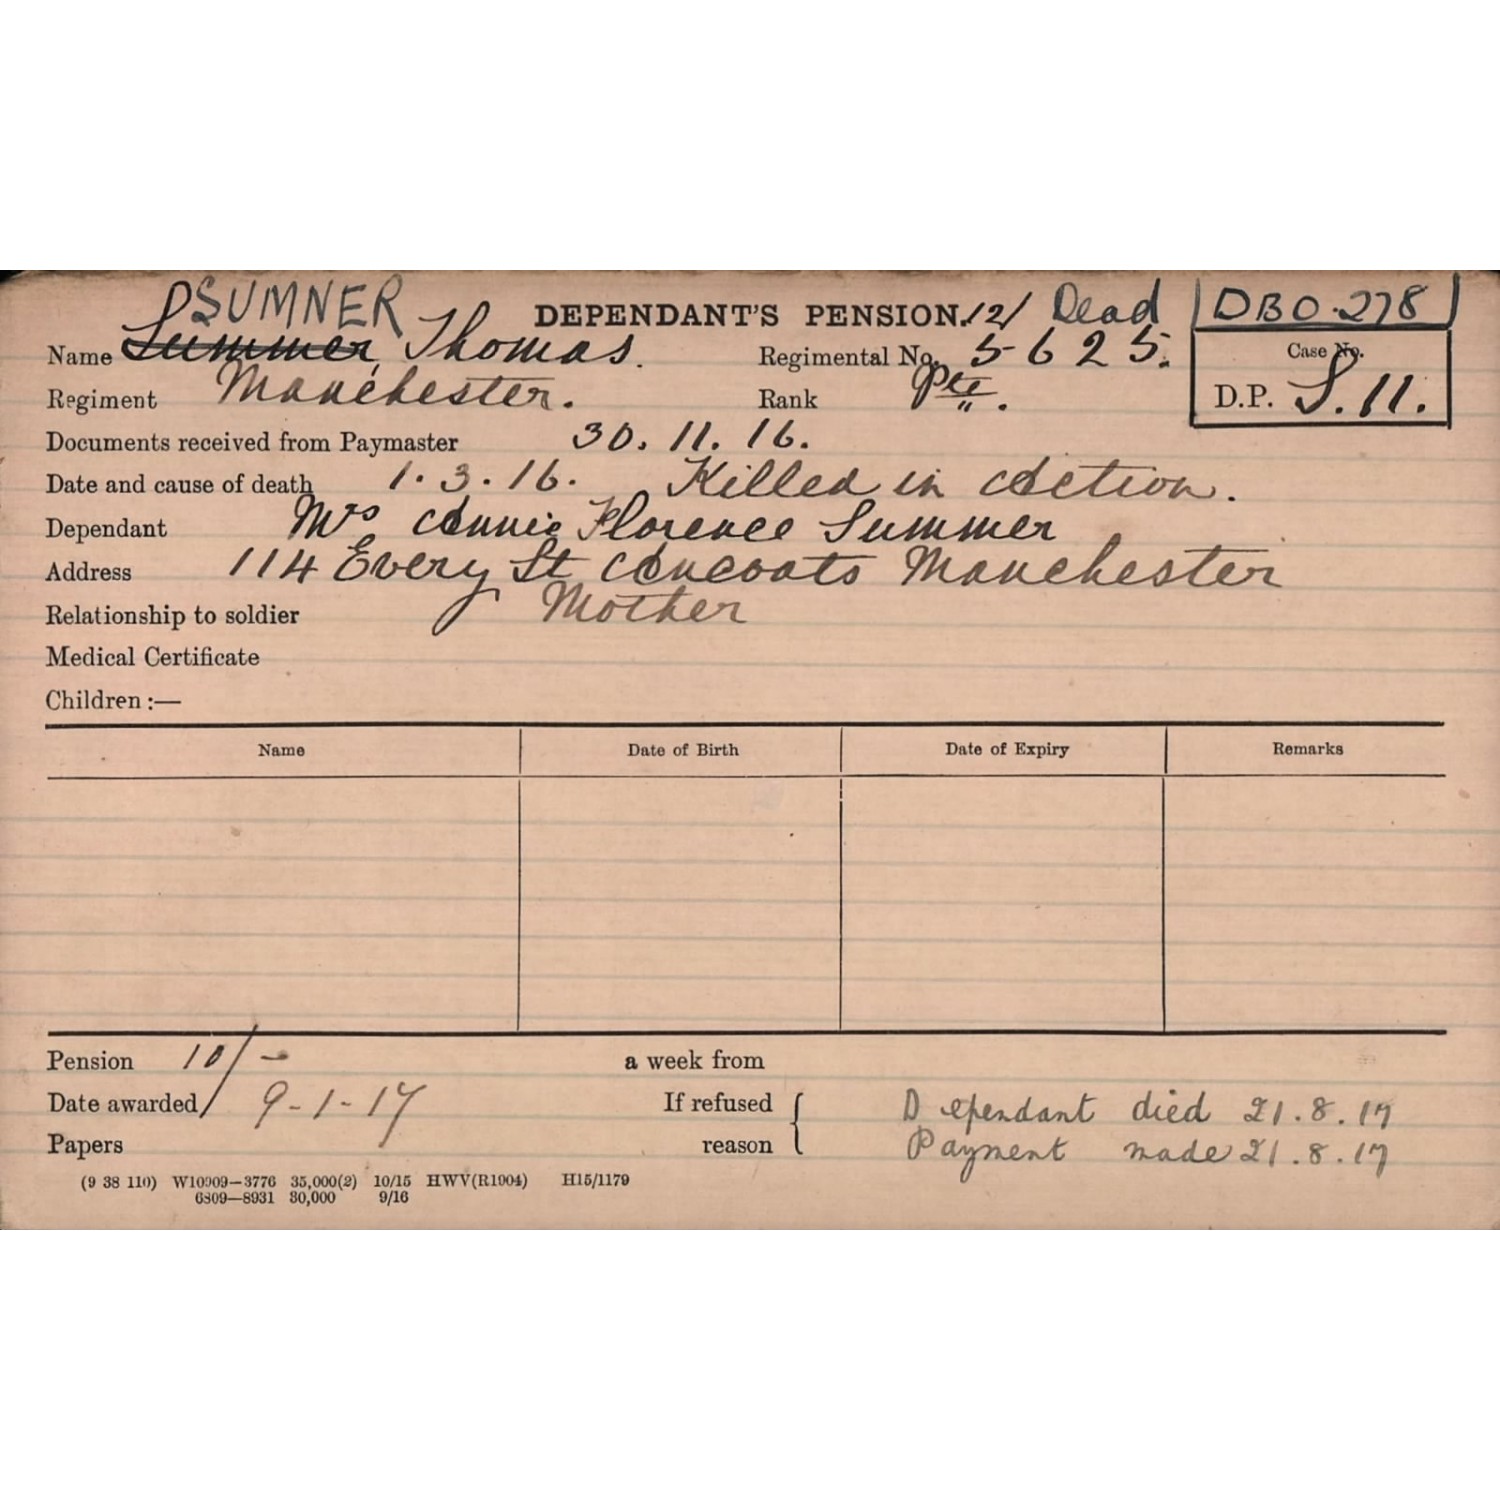 SUMNER DEPENDANT'S PENSION. 12/ Dead DBO.278
Name Summer, Thomas. Regimental No. 5625. Case No.
Regiment Manchester. Rank Pte. D.P. S.11.
Documents received from Paymaster 30. 11. 16.
Date and cause of death 1.3.16. Killed in Action.
Dependant Mrs Annie Florence Summer
Address 114 Every St Ancoats Manchester
Relationship to soldier Mother
Medical Certificate
Children :—
Name Date of Birth Date of Expiry Remarks
Pension 10/- a week from
Date awarded 9-1-17 If refused Dependant died 21.8.17
Papers reason Payment made 21.8.17
(9 38 110) W10909—3776 35,000(2) 10/15 HWV(R1004) H15/1179
6809—8931 30,000 9/16